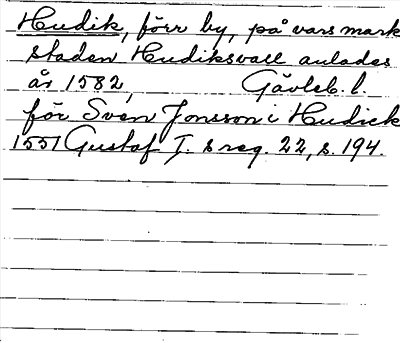 Hudik, förr by, på vars mark
staden Hudiksvall anlades
år 1582, Gävleb. l.
för Sven Jonsson i Hudick
1551 Gustaf I. s reg. 22, s. 194.